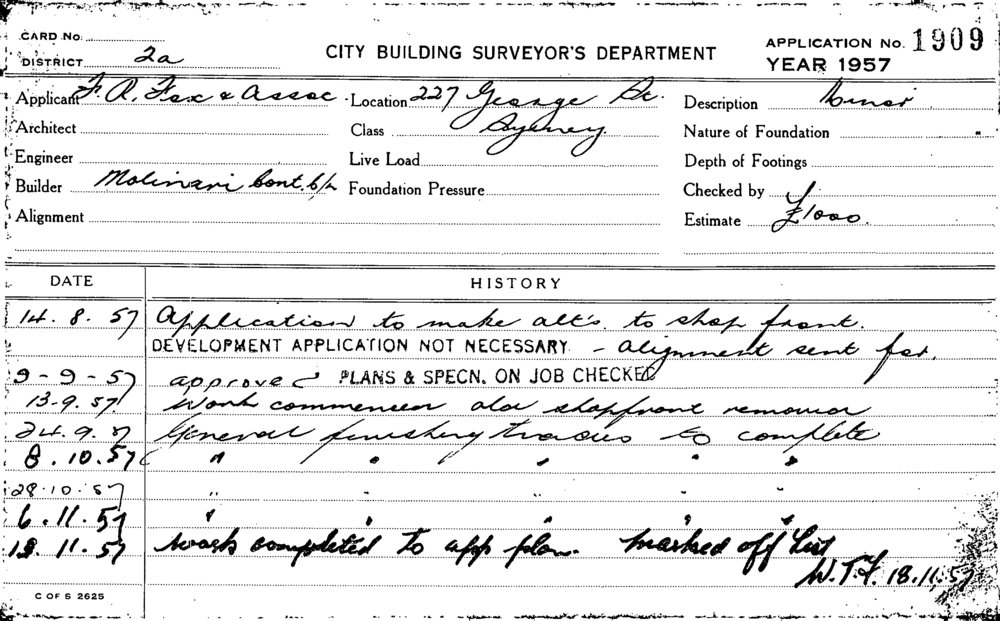 CARD No.
DISTRICT 2a
CITY BUILDING SURVEYOR'S DEPARTMENT
APPLICATION No. 1909
YEAR 1957
Applicant F. R. Fox & Assoc
Location 227 George St.
Sydney.
Description Minor
Architect
Class
Nature of Foundation
Engineer
Live Load
Depth of Footings
Builder Molinari Cont. P/L
Foundation Pressure
Checked by
Alignment
Estimate £1000.
DATE HISTORY
14. 8. 57 Application to make alt's. to shop front.
DEVELOPMENT APPLICATION NOT NECESSARY - Alignment sent for.
9-9-57 approved PLANS & SPECN. ON JOB CHECKED
13.9.57 Work commenced old shopfront removed
24.9.57 General finishing trades to complete
8.10.57 " " " " "
28.10.57 " " " " "
6.11.57 " " " " "
18.11.57 Work completed to app plan. Marked off List
W.T.F. 18.11.57
C OF S 2625